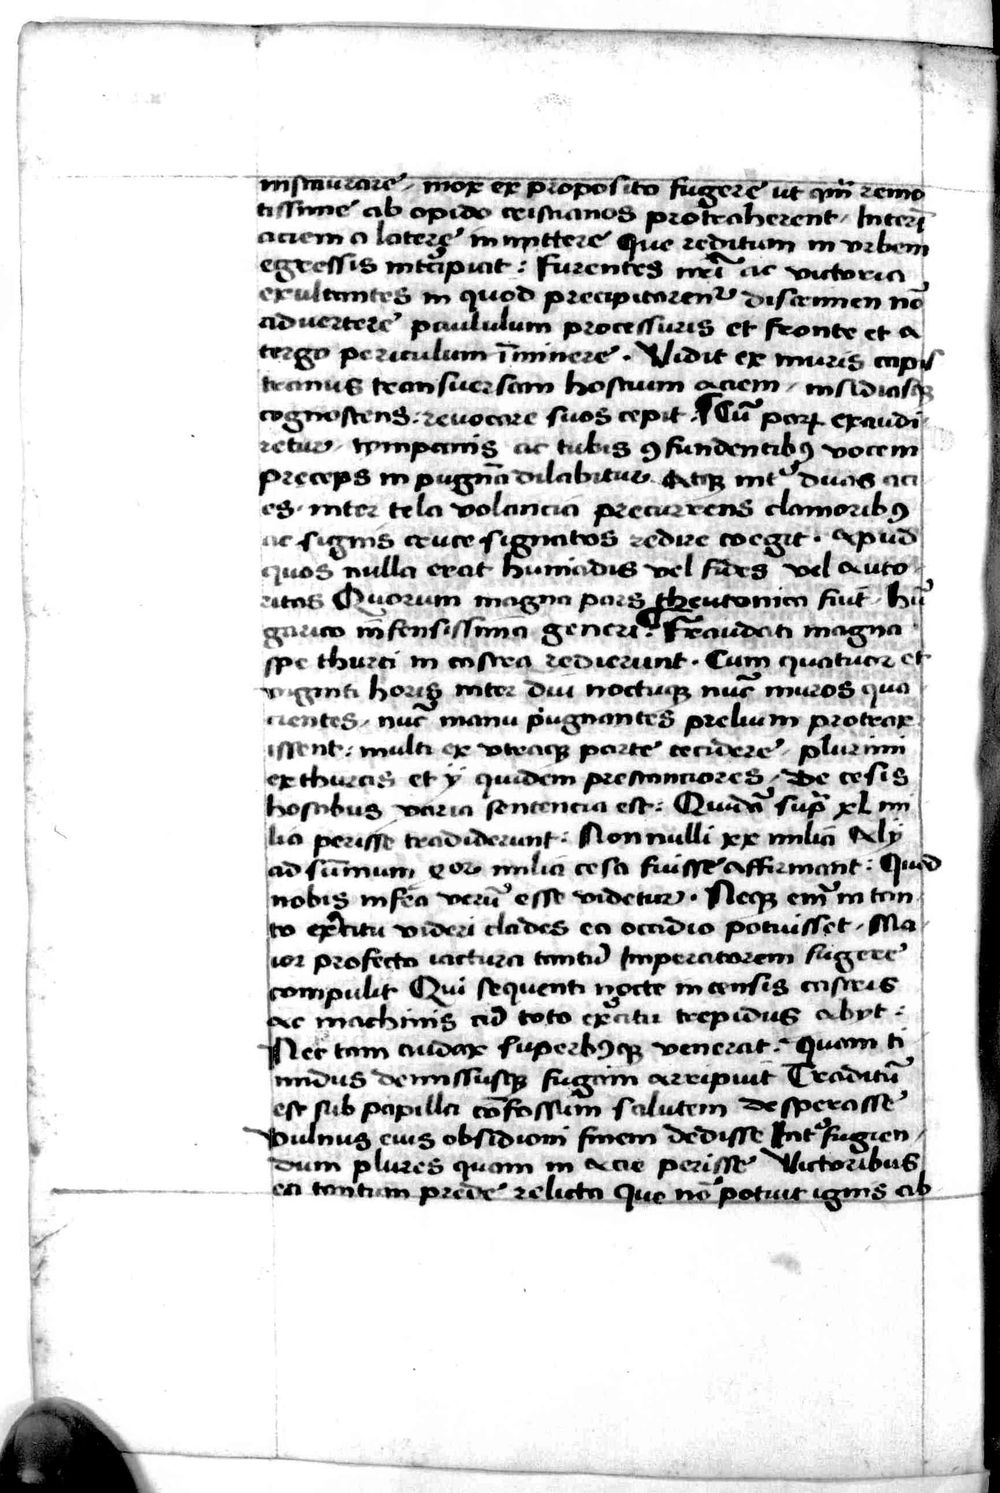 instaurare / mox ex proposito fugere ut qm̄ remo
tissime ab opido cristianos protraherent / Interī
aciem a latere inmittere Que reditum in vrbem
egressis intcipiat : Furentes nrī ac victoria
exultantes in quod precipitarenr̄ discrimen nō
aduertere paululum processuris et fronte et a
tergo periculum īminere . Vidit ex muris capis
tranus transuersam hostium aciem / insidiasq
cognoscens : reuocare suos cepit . Cū pax exaudi
retur / timpanis ac tubis 9fundentib9 vocem
preceps in pugnā dilabitur Atq intr duas aci
es . inter tela volancia precurrens clamorib9
ac signis cruce signatos redire coegit . apud
quos nulla erat huniadis vel fides vel aucto
ritas Quorum magna pars theutonica fuit / hū
garico infensissima generi : Fraudati magna
spe thurci in castra redierunt . Cum quatuor et
viginti horis inter diu noctuq nūc muros qua
cientes / nūc manu pugnantes prelium protrax
issent : multi ex vtraq parte cecidere / plurimi
ex thurcis et ij quidem prestanciores / De cesis
hostibus varia sentencia est : Quidā supra xl mi
lia perisse tradiderunt : Non nulli xx milia Alij
ad sūmum milia cesa fuisse affirmant : Quod
nobis infca verū esse videtur . Neq enī in tan
to exercitu videri clades ea occidio potuisset / Ma
ior profecto iactura tantū Imperatorem fugere
compulit Qui sequenti nocte incensis castris
ac machinis cū toto exercitu trepidus abyt :
Nec tam audax superb9q venerat . Quam ti
midus demissusq fugam arripuit Traditū
est sub papilla cōfossum salutem desperasse
vulnus eius obsidioni finem dedisse Intr fugien /
dum plures quam in acie perisse Victoribus
ea tantum prede relicta Que nō potuit ignis ab